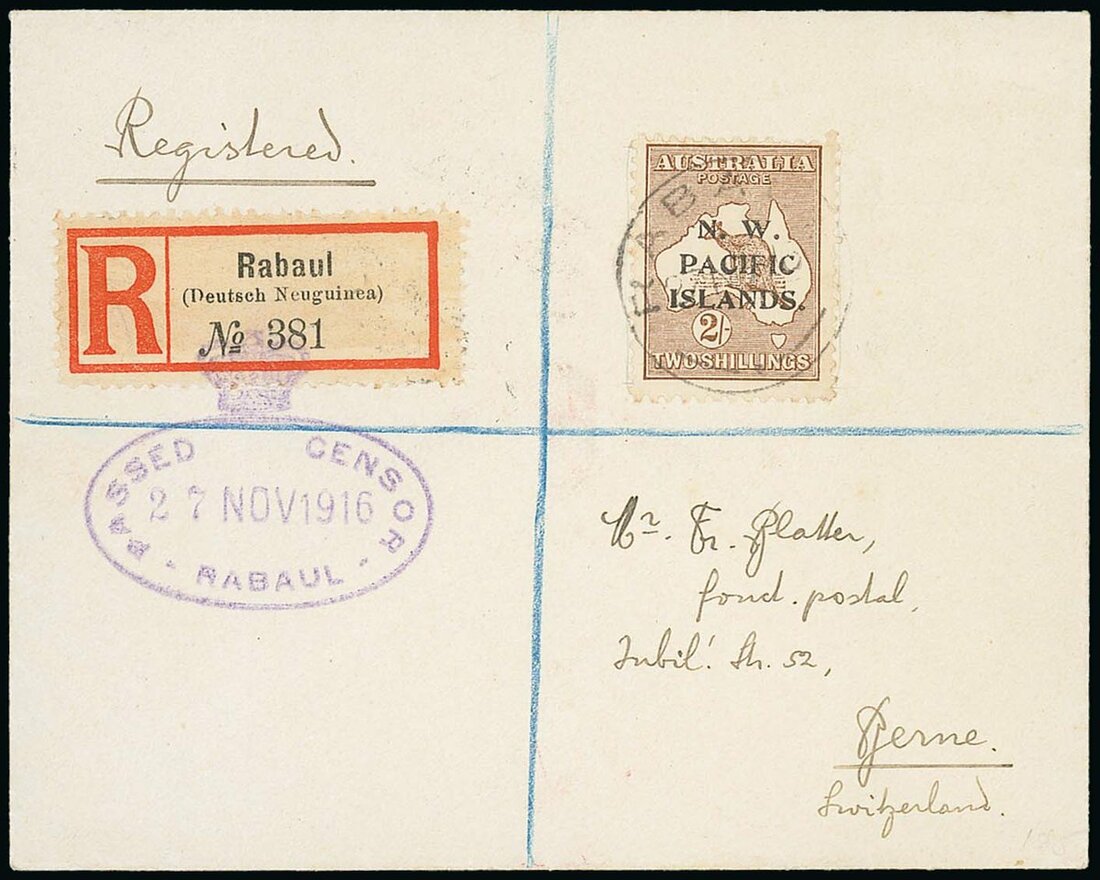 Registered.
R
Rabaul
(Deutsch Neuguinea)
No 381
AUSTRALIA
POSTAGE
N. W.
PACIFIC
ISLANDS.
2/-
TWO SHILLINGS
RABA
PASSED CENSOR
27 NOV 1916
- RABAUL -
Mr. Fr. Platter,
fonct. postal,
Jubil. Str. 52,
Berne.
Switzerland.